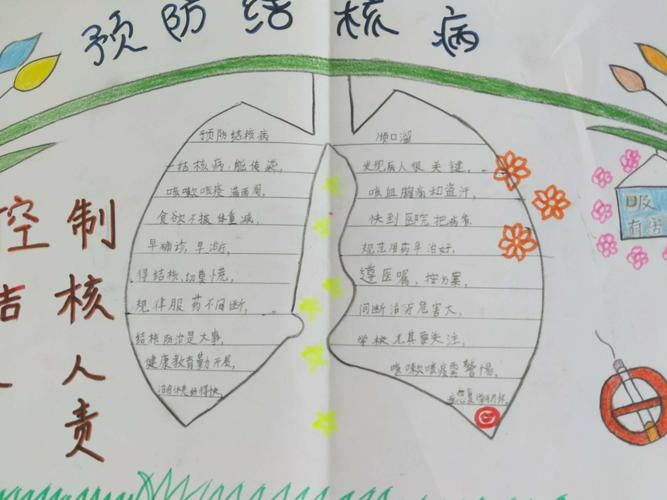 预防结核病
控制
结核
人人
责
预防结核病
结核病,能传染,
咳嗽咳痰
食欲不振体重减,
早确诊,早治疗,
得结核,切莫慌,
规律服药不间断,
结核防治是大事,
健康教育勤开展,
顺口溜
发现病人很关键,
咳血胸痛和盗汗,
快到医院把病看,
规范用药早治好,
遵医嘱,按方案,
间断治疗危害大,
学校尤其要关注,
咳嗽咳痰要警惕,
吸
有害